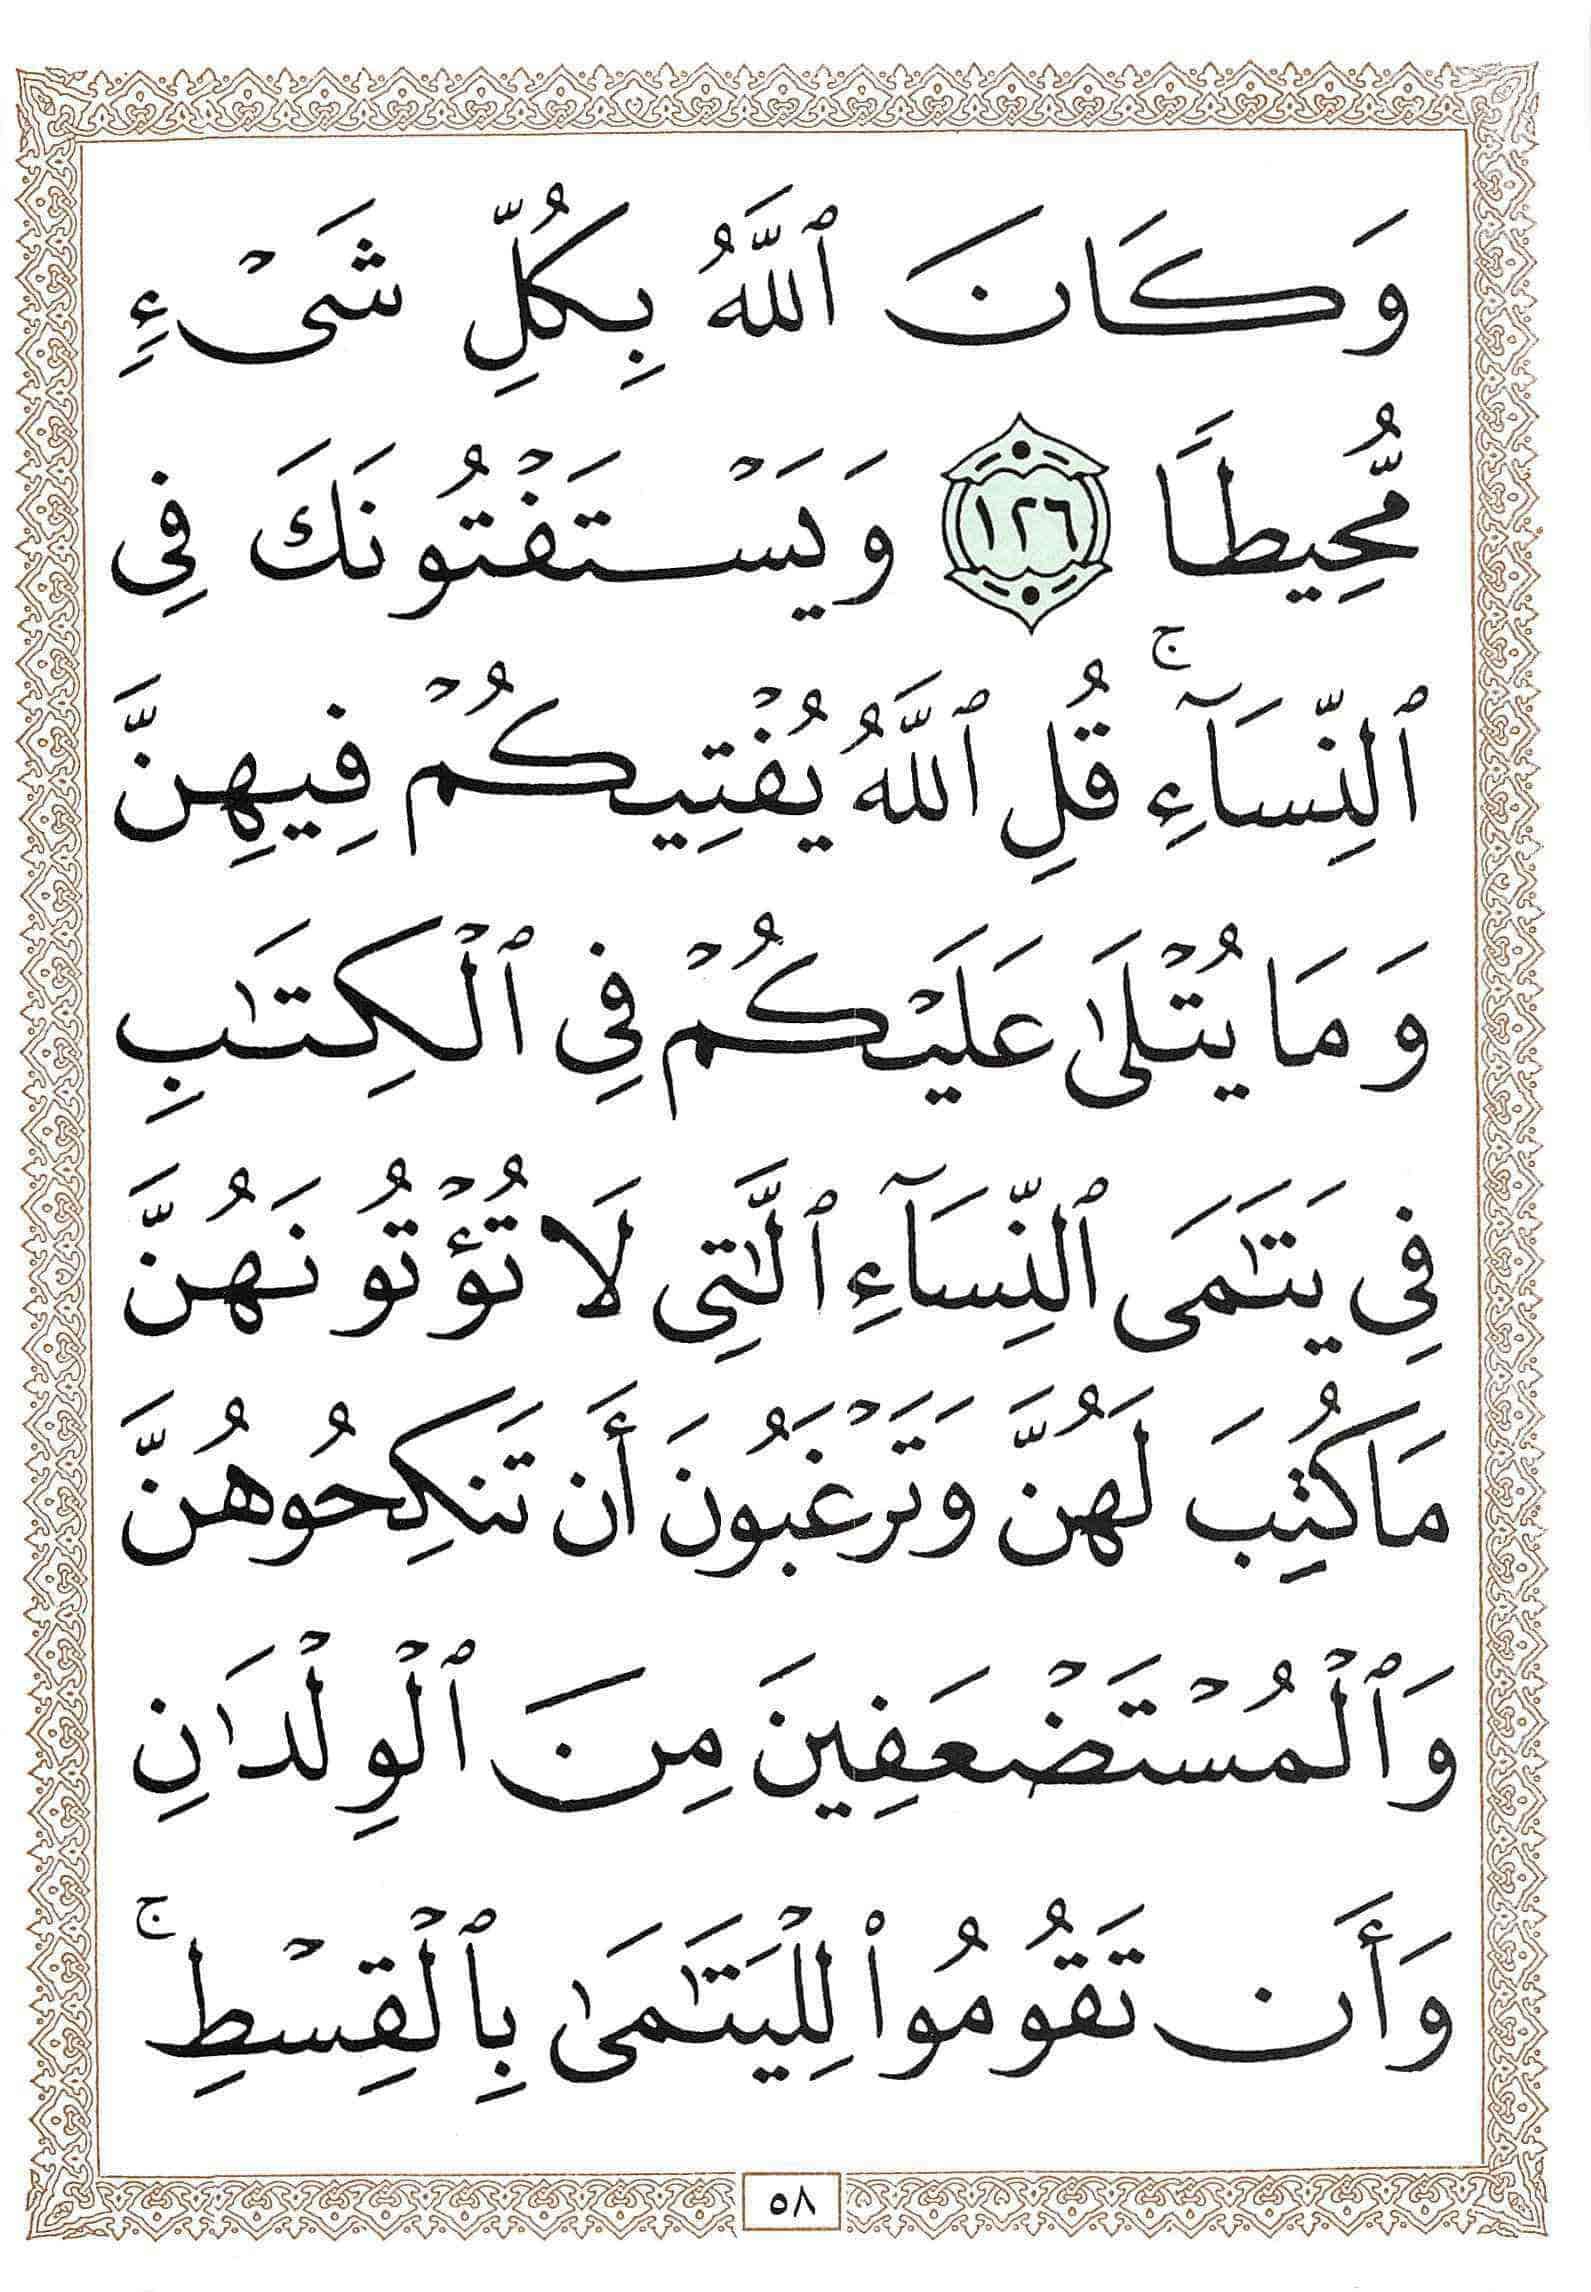 وَكَانَ ٱللَّهُ بِكُلِّ شَىْءٍ
مُّحِيطًا ١٢٦ وَيَسْتَفْتُونَكَ فِى
ٱلنِّسَآءِ ۚ قُلِ ٱللَّهُ يُفْتِيكُمْ فِيهِنَّ
وَمَا يُتْلَىٰ عَلَيْكُمْ فِى ٱلْكِتَٰبِ
فِى يَتَٰمَى ٱلنِّسَآءِ ٱلَّٰتِى لَا تُؤْتُونَهُنَّ
مَا كُتِبَ لَهُنَّ وَتَرْغَبُونَ أَن تَنكِحُوهُنَّ
وَٱلْمُسْتَضْعَفِينَ مِنَ ٱلْوِلْدَٰنِ
وَأَن تَقُومُوا۟ لِلْيَتَٰمَىٰ بِٱلْقِسْطِ ۚ
٥٨